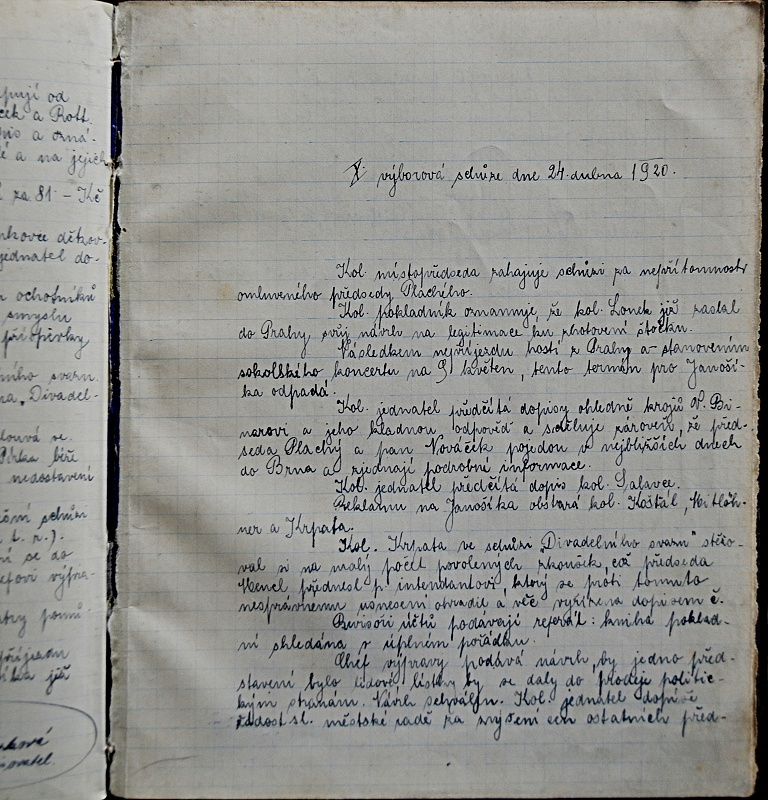 pují od
ček a Rott.
pis a ozná-
é a na jejich
za 81 - Kč
nkovce děkov-
jednatel do-
ochotníků
smyslu
připirky
ního svazu.
na „Divadel-
douvá se.
Pirka bíře
nedostavení
ční schůzi
t. r.).
ní se do
efovi výpra-
atry pomů-
příjezdu
již
X. výborová schůze dne 24. dubna 1920.
Kol. místopředseda zahajuje schůzi za nepřítomnosti
omluveného předsedy Plachého.
Kol. pokladník oznamuje, že kol. Lonek již zaslal
do Prahy svůj návrh na legitimace ku zhotovení štočku.
Následkem nepříjezdu hostí z Prahy a stanovením
sokolského koncertu na 9. květen, tento termín pro Janoší-
ka odpadá.
Kol. jednatel předčítá dopisy ohledně krojů p. Bi-
narovi a jeho kladnou odpověď a sděluje zároveň, že před-
seda Plachý a pan Nováček pojedou v nejbližších dnech
do Brna a zjednají podrobné informace.
Kol. jednatel předčítá dopis kol. Salavce.
Reklamu na Janošíka obstará kol. Košťál, Mitlöh-
ner a Krpata.
Kol. Krpata ve schůzi „Divadelního svazu" stěžo-
val si na malý počet povolených zkoušek, což předseda
Mencl přednesl p. intendantovi, který se proti tomuto
nesprávnému usnesení ohradil a věc vyřízena dopisem č.
Revisoři účtů podávají referát: kniha poklad-
ní shledána v úplném pořádku.
Chef výpravy podává návrh, by jedno před-
stavení bylo lidové, lístky by se daly do prodeje politic-
kým stranám. Návrh schválen. Kol. jednatel dopíše
žádost sl. městské radě za zvýšení cen ostatních před-